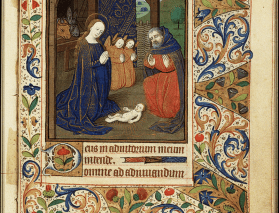 Deus in adiutorium meum
intende.
Domine ad adiuvandum